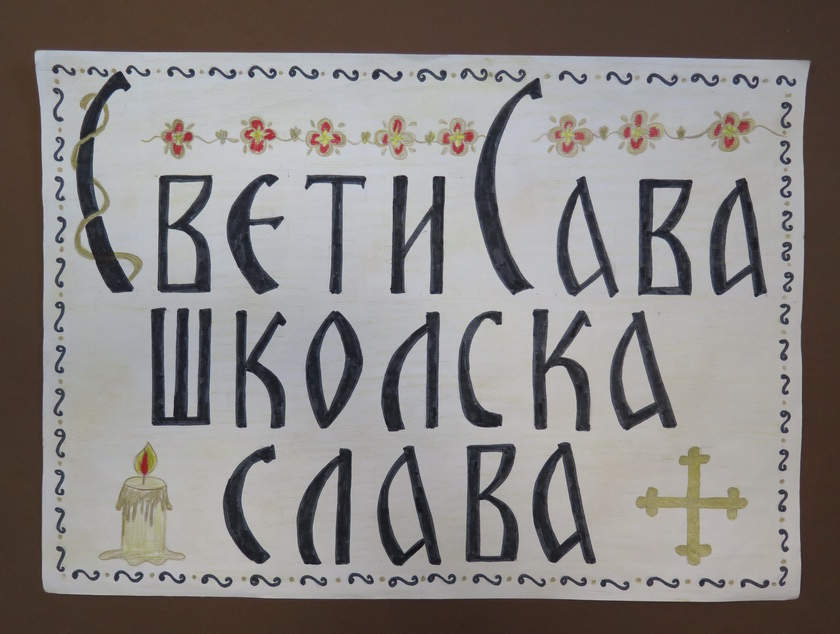 Свети Сава
школска
слава